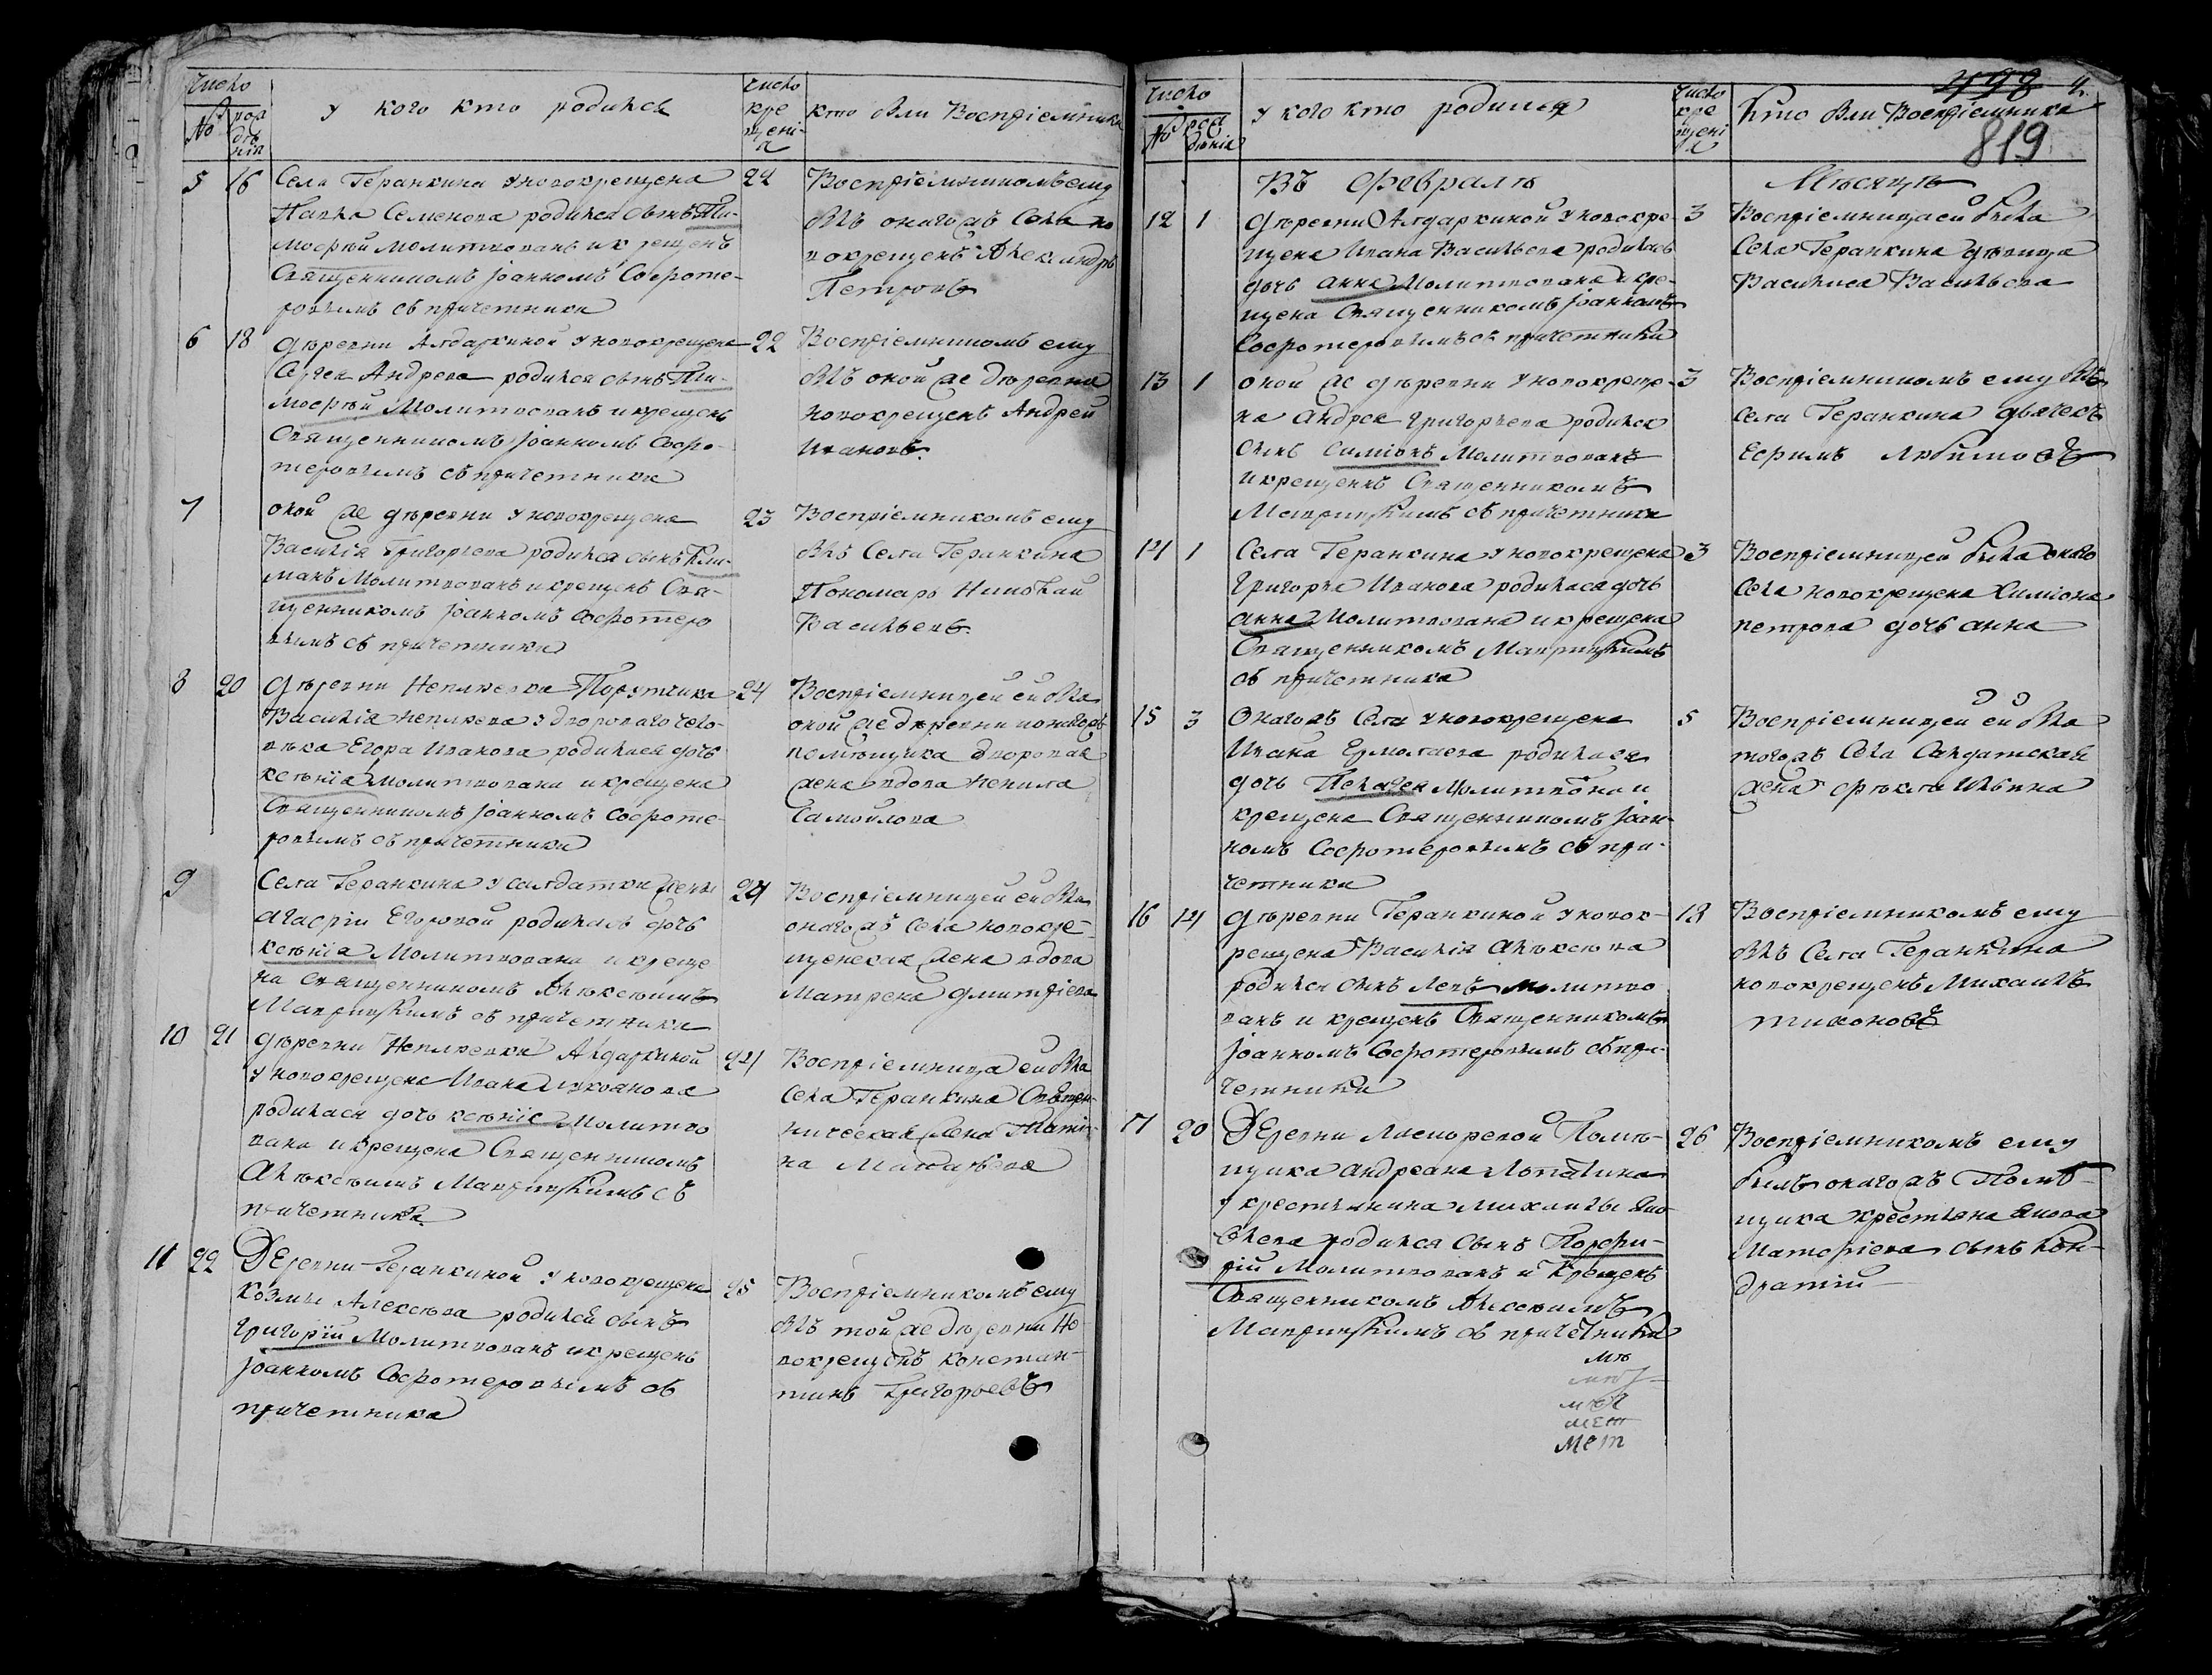 Число
№ рождѣнія
у кого кто родился
Число крещенія
кто былъ Воспріемники
5 16 Села Геранкина у новокрещена 22
Павла Семенова родился сынъ Ти-
мофѣй молитвованъ и крещенъ
Священникомъ Іоанномъ Сосфоте-
ровымъ съ причетники
Воспріемникомъ ему
былъ онагожъ Села но
вокрещенъ Александръ
Петровъ
6 18 дѣревни Алдаркиной у новокрещена 22
Сергея Андреева родился сынъ Ти-
мофѣй Молитвованъ и крещенъ
Священникомъ Іоанномъ Сосфо-
теровымъ съ причетники
Воспріемникомъ ему
былъ оной же дѣревни
новокрещенъ Андрей
Ивановъ
7 оной же дѣревни у новокрещена 23
Василія Григорьева родился сынъ Кли-
манъ Молитвованъ и крещенъ Свя-
щенникомъ Іоанномъ Сосфотеро
вымъ съ причетники
Воспріемникомъ ему
былъ Села Геранкина
Пономарь Николай
Васильевъ
8 20 дѣревни Неплюевки Порутчика 24
Василія Неплюева у двороваго чело-
вѣка Егора Иванова родилася дочь
ксѣнія молитвована и крещена
Священникомъ Іоанномъ Сосфоте-
ровымъ съ причетники
Воспріемницей ей была
оной же дѣревни и онагожъ
помѣщика дворовая
жена вдова Ненила
Самойлова
9 Села Геранкина у салдатки жены 24
Агафіи Егоровой родилась дочь
ксѣнія Молитвована и креще
на Священникомъ Алѣксѣимъ
Мавринскимъ съ причетники
Воспріемницей ей была
онагожъ Села новокре-
щенская жена вдова
Матрена дмитріева
10 21 дѣревни Неплюевки Алдаркиной 24
у новокрещена Ивана Лукоянова
родилася дочь ксѣніе Молитво
вана и крещена Священникомъ
Алѣксѣимъ Мавринскимъ съ
причетники
Воспріемница ей была
Села Геранкина Священ-
ническая жена Татия-
на Матвѣева
11 22 Деревни Геранкиной у новокрещена 25
Козмы Алексѣева родился сынъ
Григорій Молитвованъ и крещенъ
Іоанномъ Сосфотеровымъ съ
причетники
Воспріемникомъ ему
былъ той же дѣревни но
вокрещенъ констан-
тинъ Григорьевъ
Число
№ рождѣнія
у кого кто родился
Число крещенія
Кто был Воспріемники
4
819
Въ Февралѣ
Мѣсяцѣ
12 1 дѣревни Алдаркиной у новокре- 3
щена Ивана Васильева родилась
дочь Анна Молитвована и кре-
щена Священникомъ Іоанномъ
Сосфотеровымъ съ причетники
Воспріемницей была
Села Геранкина дѣвица
Василиса Васильева
13 1 оной же дѣревни у новокреще- 3
на Андрея Григорьева родился
сынъ Симіонъ Молитвованъ
и крещенъ Священникомъ
Мавринскимъ съ причетники
Воспріемникомъ ему былъ
Села Геранкина дьячекъ
Ефимъ Любимовъ
14 1 Села Геранкина у новокрещена 3
Григорья Иванова родилася дочь
Анна Молитвована и крещена
Священникомъ Мавринскимъ
съ причетники
Воспріемницей была онаго
Села новокрещена Симіона
петрова дочь Анна
15 3 Онагожъ Села у новокрещена 5
Ивана Ермолаева родилася
дочь Пелагея Молитвована и
крещена Священникомъ Іоан-
номъ Сосфотеровымъ съ при-
четники
Воспріемницей ей была
тогожъ Села Салдатская
жена Ѳекла Ильина
16 14 дѣревни Геранкиной у новок- 18
рещена Василія Алѣксѣева
родился сынъ Левъ молитво
ванъ и крещенъ Священникомъ
Іоанномъ Сосфотеровымъ съ при-
четники
Воспріемникомъ ему
былъ Села Геранкина
новокрещенъ Михаилъ
тихоновъ
17 20 Деревни Помѣ- 26
щика Андреана Лопатина
у крестьянина Михаилы
родился сынъ Порфи-
рій Молитвованъ и Крещенъ
Священникомъ Алексѣимъ
Мавринскимъ съ причетники
Воспріемникомъ ему
былъ онагожъ Помѣ-
щика крестьяна
сынъ Кон-
дратій
мет